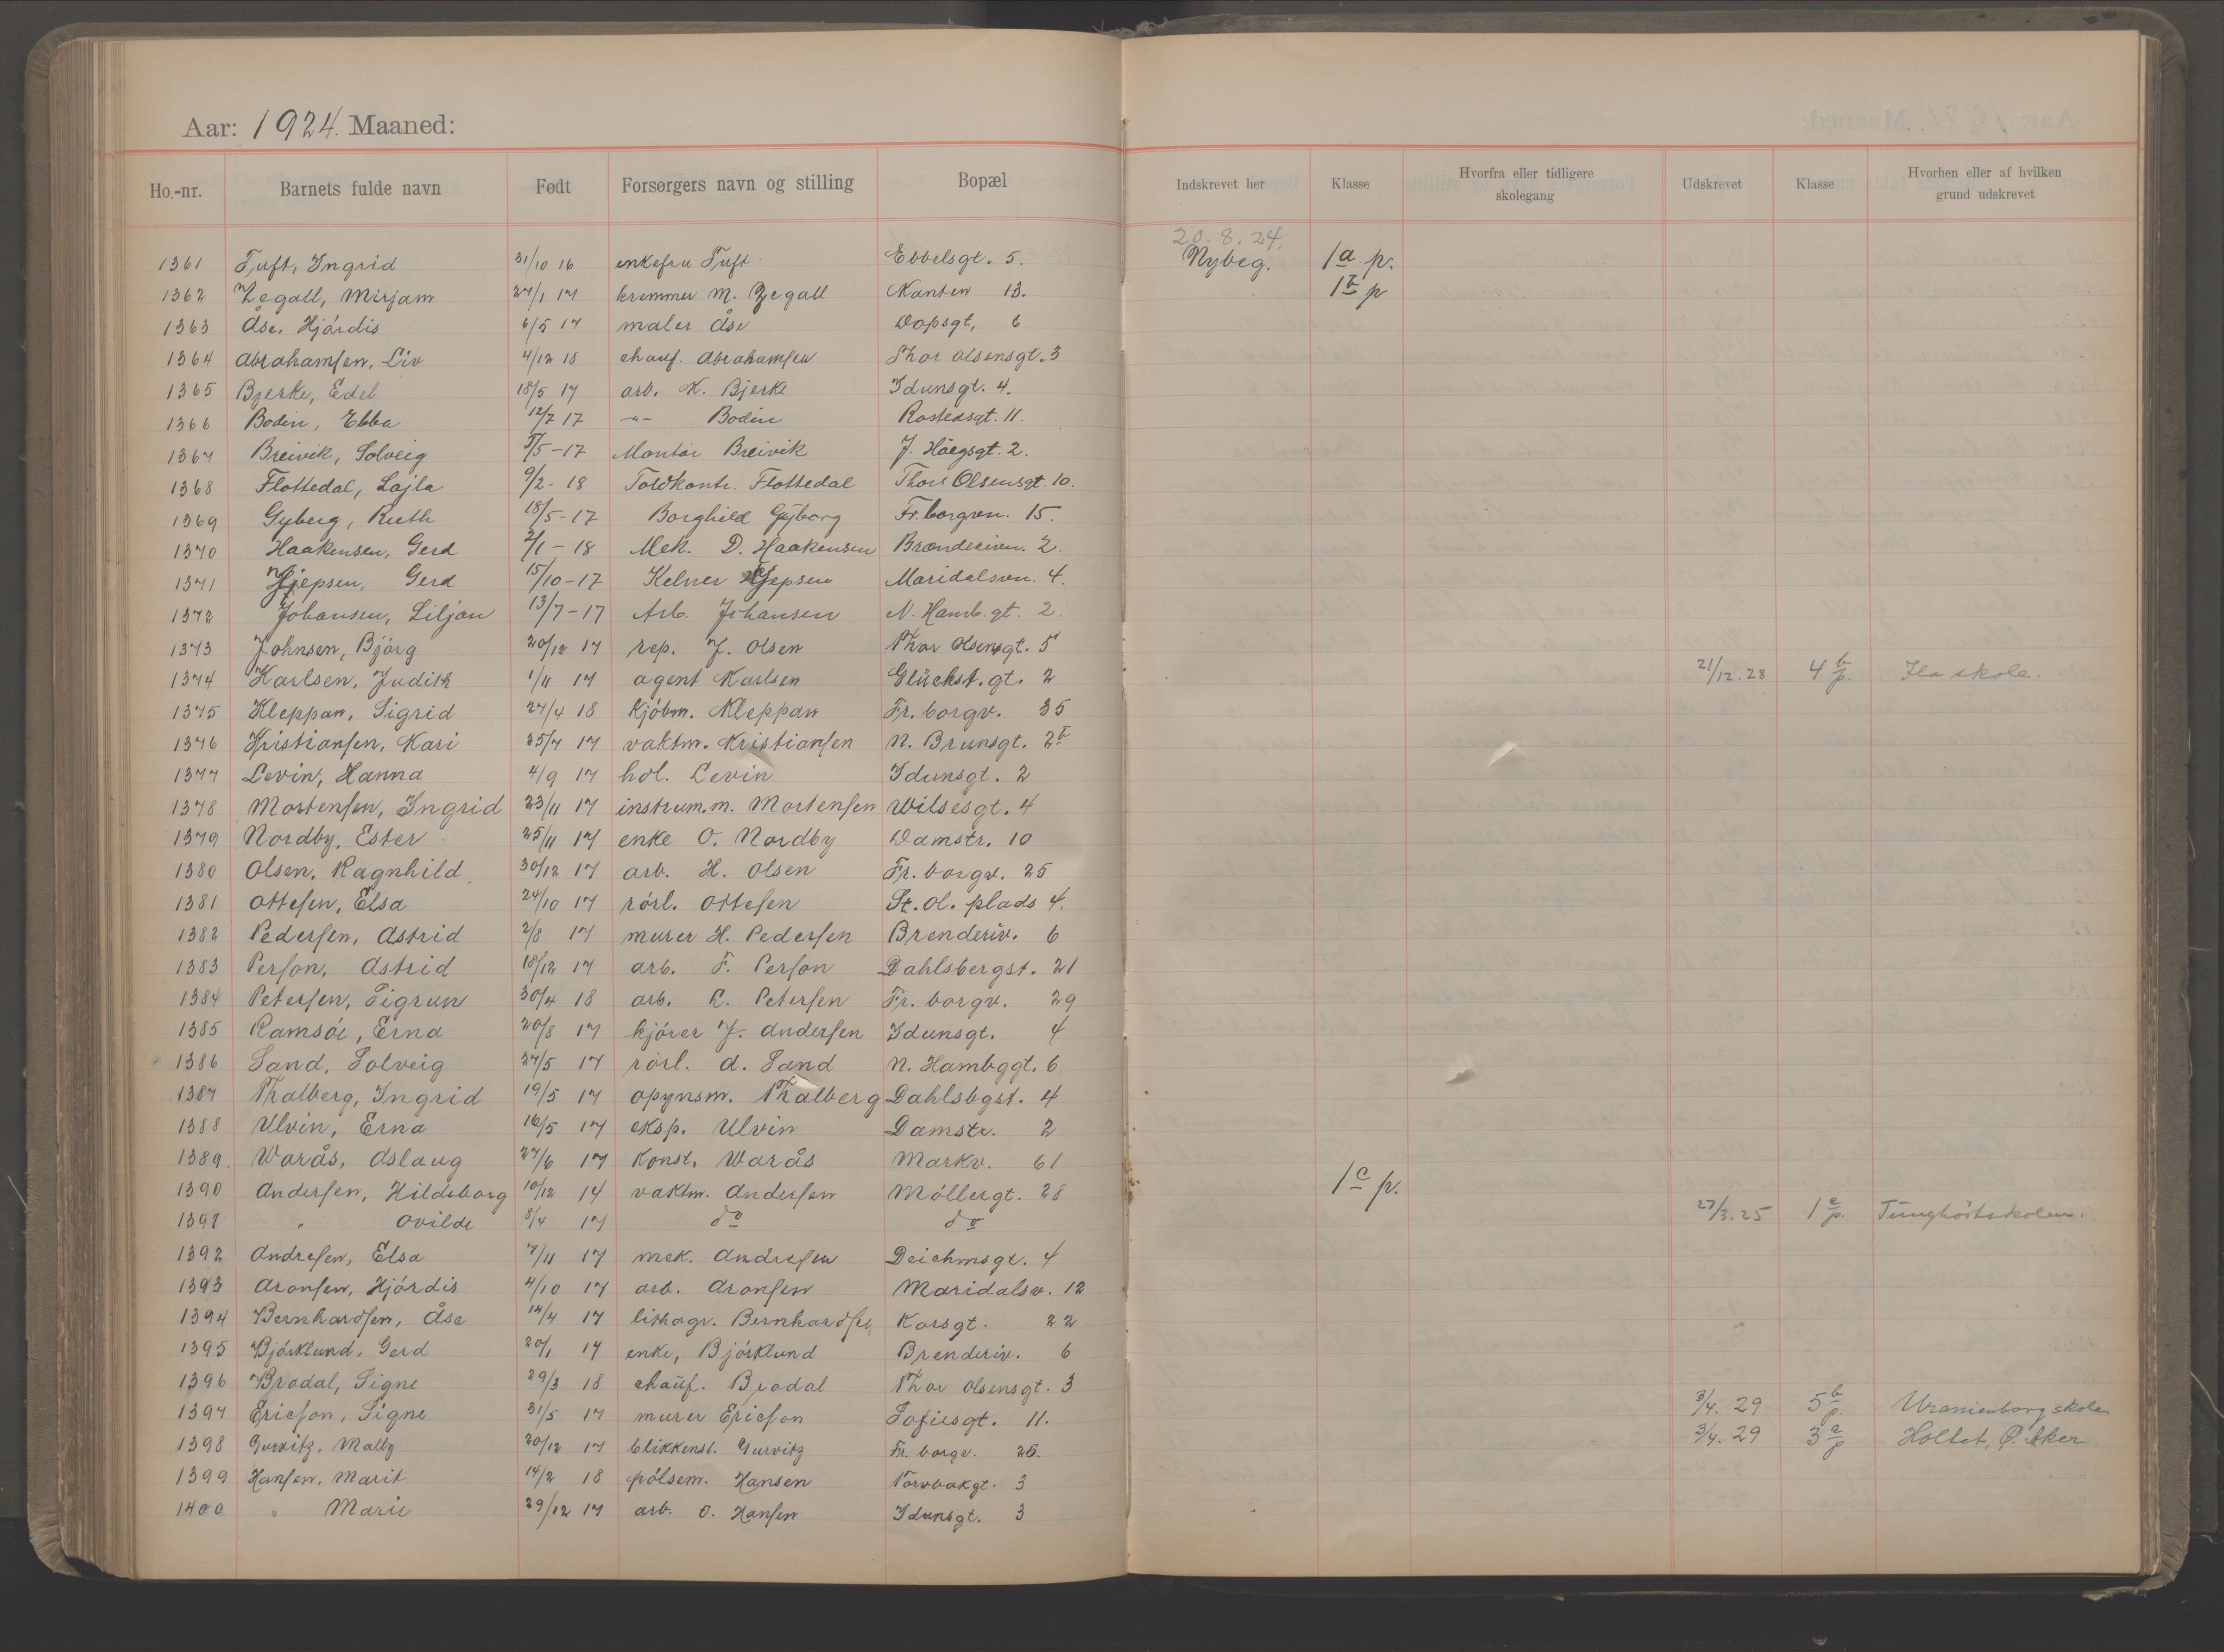 Aar: 1924. Maaned:
Ho.-nr. Barnets fulde navn Født Forsørgers navn og stilling Bopæl Indskrevet her Klasse Hvorfra eller tidligere skolegang Udskrevet Klasse Hvorhen eller af hvilken grund udskrevet
20.8.24.
1361 Tuft, Ingrid 31/10 16 enkefru Tuft Ebbelsgt. 5. Nybeg. 1a p.
1362 Zegall, Mirjam 27/1 17 kremmer M. Zegall Kanten 13. 1b p
1363 Åse, Hjördis 6/5 17 maler Åse Dopsgt, 6
1364 Abrahamsen, Liv 4/12 18 chauf. Abrahamsen Thor Olsensgt. 3
1365 Bjerke, Edel 18/5 17 arb. K. Bjerke Idunsgt. 4.
1366 Bodin, Ebba 12/7 17 -"- Bodin Rostedsgt. 11.
1367 Breivik, Solveig 5/5-17 Montör Breivik J. Håegsgt. 2.
1368 Flottedal, Lajla 9/2-18 Toldkontr. Flottedal Thors Olsensgt. 10.
1369 Gyberg, Ruth 18/5-17 Borghild Gyberg Fr.borgvn. 15.
1370 Haakensen, Gerd 2/1-18 Mek. D. Haakensen Brænderivn. 2.
1371 Hjepsen, Gerd 15/10-17 Kelner Hjepsen Maridalsvn. 4.
1372 Johansen, Liljan 13/7-17 Arb. Johansen N. Hamb.gt. 2.
1373 Johnsen, Björg 20/12 17 rep. J. Olsen Thor Olsensgt. 5
1374 Karlsen, Judith 1/11 17 agent Karlsen Glückst.gt. 2 21/12.28 4 b p. Ila skole.
1375 Kleppan, Sigrid 27/4 18 kjöbm. Kleppan Fr. borgv. 35
1376 Kristiansen, Kari 25/7 17 vaktm. Kristiansen N. Brunsgt. 2b
1377 Levin, Hanna 4/9 17 hdl. Levin Idunsgt. 2
1378 Mortensen, Ingrid 23/11 17 instrum.m. Mortensen Wilsesgt. 4
1379 Nordby, Ester 25/11 17 enke O. Nordby Damstr. 10
1380 Olsen, Ragnhild 30/12 17 arb. H. Olsen Fr. borgv. 25
1381 Ottesen, Elsa 24/10 17 rörl. Ottesen St. Ol. plads 4.
1382 Pedersen, Astrid 2/8 17 murer H. Pedersen Brenderiv. 6
1383 Person, Astrid 18/12 17 arb. F. Person Dahlsbergst. 21
1384 Petersen, Sigrun 30/4 18 arb. R. Petersen Fr. borgv. 29
1385 Ramsöe, Erna 20/8 17 kjörer J. Andersen Idunsgt. 4
1386 Sand, Solveig 27/5 17 rörl. A. Sand N. Hambggt. 6
1387 Thalberg, Ingrid 19/5 17 opynsm. Thalberg Dahlsbgst. 4
1388 Ulvin, Erna 16/5 17 eksp. Ulvin Damstr. 2
1389. Warås, Aslaug 27/6 17 konst. Warås Markv. 61
1390 Andersen, Hildeborg 10/12 14 vaktm. Andersen Möllergt. 28 1c p.
1391 " Ovilde 8/4 17 do do 27/3.25 1 c p. Tunghörtskolen.
1392 Andresen, Elsa 7/11 17 mek. Andresen Deichmsgt. 4
1393 Aronsen, Hjördis 4/10 17 arb. Aronsen Maridalsv. 12
1394 Bernhardsen, Åse 14/4 17 lithogr. Bernhardsen Korsgt. 22
1395 Björklund, Gerd 20/1 17 enke, Björklund Brenderiv. 6
1396 Brodal, Signe 29/3 18 chauf. Brodal Thor Olsensgt. 3
1397 Ericson, Signe 31/5 17 murer Ericson Sofiesgt. 11. 3/4.29 5 b p. Uranienborg skole
1398 Gurvitz, Mally 20/12 17 blikkensl. Gurvitz Fr. borgv. 26. 3/4.29 3 a p Holtet, Ø. Aker
1399 Hansen, Marit 14/2 18 pölsem. Hansen Torvbakgt. 3
1400 " Marie 29/12 17 arb. O. Hansen Idunsgt. 3